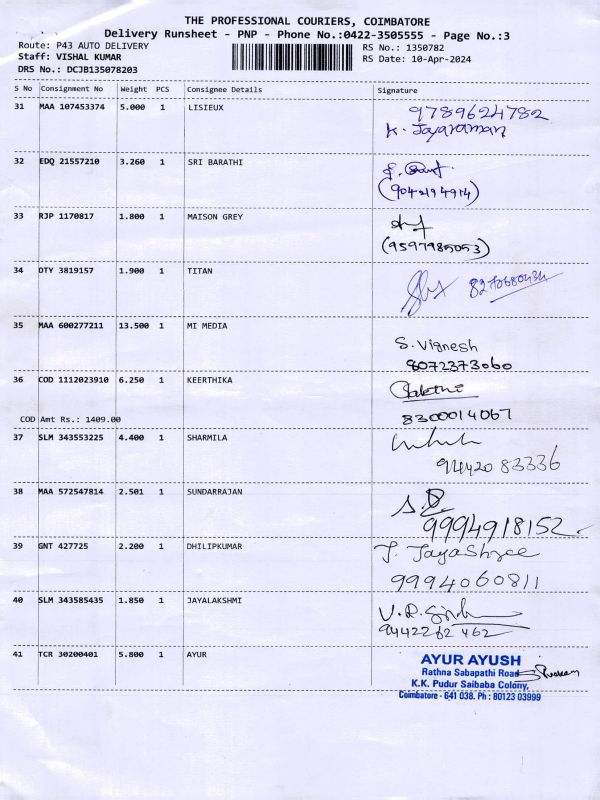 THE PROFESSIONAL COURIERS, COIMBATORE
Delivery Runsheet - PNP - Phone No.:0422-3505555 - Page No.:3
Route: P43 AUTO DELIVERY
RS No.: 1350782
Staff: VISHAL KUMAR
RS Date: 10-Apr-2024
DRS No.: DCJB135078203
S No Consignment No Weight PCS Consignee Details Signature
31 MAA 107453374 5.000 1 LISIEUX 9789624782
K. Jayaraman
32 EDQ 21557210 3.260 1 SRI BARATHI
(9042194914)
33 RJP 1170817 1.800 1 MAISON GREY
(9597985053)
34 OTY 3819157 1.900 1 TITAN
35 MAA 600277211 13.500 1 MI MEDIA
S. Vignesh
8072373060
36 COD 1112023910 6.250 1 KEERTHIKA
8300014067
COD Amt Rs.: 1409.00
37 SLM 343553225 4.400 1 SHARMILA
94420 83336
38 MAA 572547814 2.501 1 SUNDARRAJAN
9994918152
39 GNT 427725 2.200 1 DHILIPKUMAR J. Jayashree
9994060811
40 SLM 343585435 1.850 1 JAYALAKSHMI
9442262 462
41 TCR 30200401 5.800 1 AYUR AYUR AYUSH
Rathna Sabapathi Road
K.K. Pudur Saibaba Colony,
Coimbatore - 641 038. Ph : 80123 03999